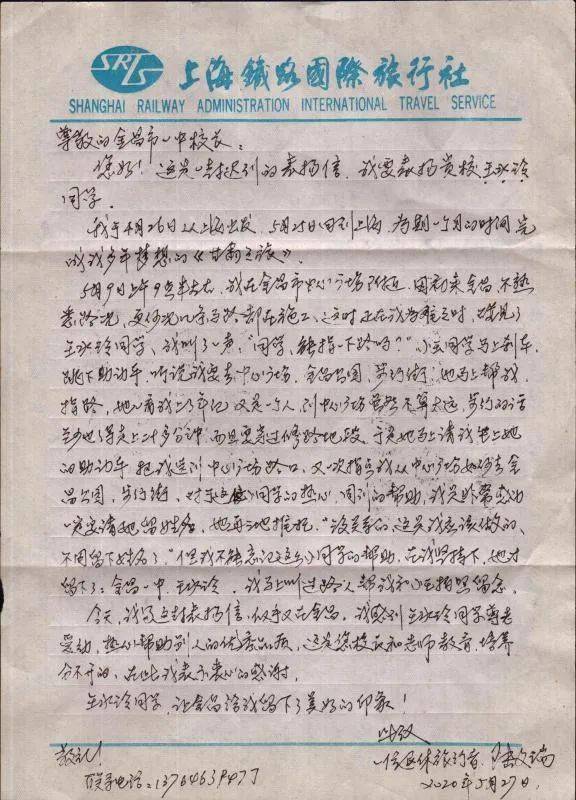 SRTS
上海鐵路國際旅行社
SHANGHAI RAILWAY ADMINISTRATION INTERNATIONAL TRAVEL SERVICE
尊敬的金昌市一中校长：
您好！这是一封迟到的表扬信，我要表扬贵校王冰冷
同学。
我于4月26日从上海出发，5月25日回到上海，为期一个月的时间完
成我多年梦想的《甘肃之旅》。
5月9日上午9点半左右，我在金昌市中心广场附近，因初来金昌，不熟
悉路况，更何况几条马路都在施工，这时正在我为难之时，碰见了
王冰冷同学，我叫了一声，“同学，能指一下路吗？”小王同学马上刹车，
跳下助动车，听说我要去中心广场，金昌公园，步行街，她马上帮我
指路，她看我上了年纪，又是一个人，到中心广场虽然不算太远，步行的话
至少也得走上二十多分钟，而且要穿过修路地段，于是她马上请我坐上她
的助动车，把我送到中心广场路口，又一次指点我从中心广场如何去金
昌公园，步行街，对于这位同学的热心，周到的帮助，我是非常感动
一定要请她留姓名，她再三地推托，“没关系的，这是我应该做的，
不用留下姓名了。”但我不能忘记这位小同学的帮助，在我坚持下，她才
留下了：金昌一中，王冰冷，我马上叫过路人帮我和小王拍照留念。
今天，我写这封表扬信，似乎又在金昌，我感到王冰冷同学尊老
爱幼，热心帮助别人的优秀品质，这是您校长和老师教育，培养
分不开的，在此我表示衷心的感谢。
王冰冷同学，让金昌给我留下了美好的印象！
此致
敬礼！
一位退休旅行者：陆文瑞
联系电话：13764639477
2020年5月27日，